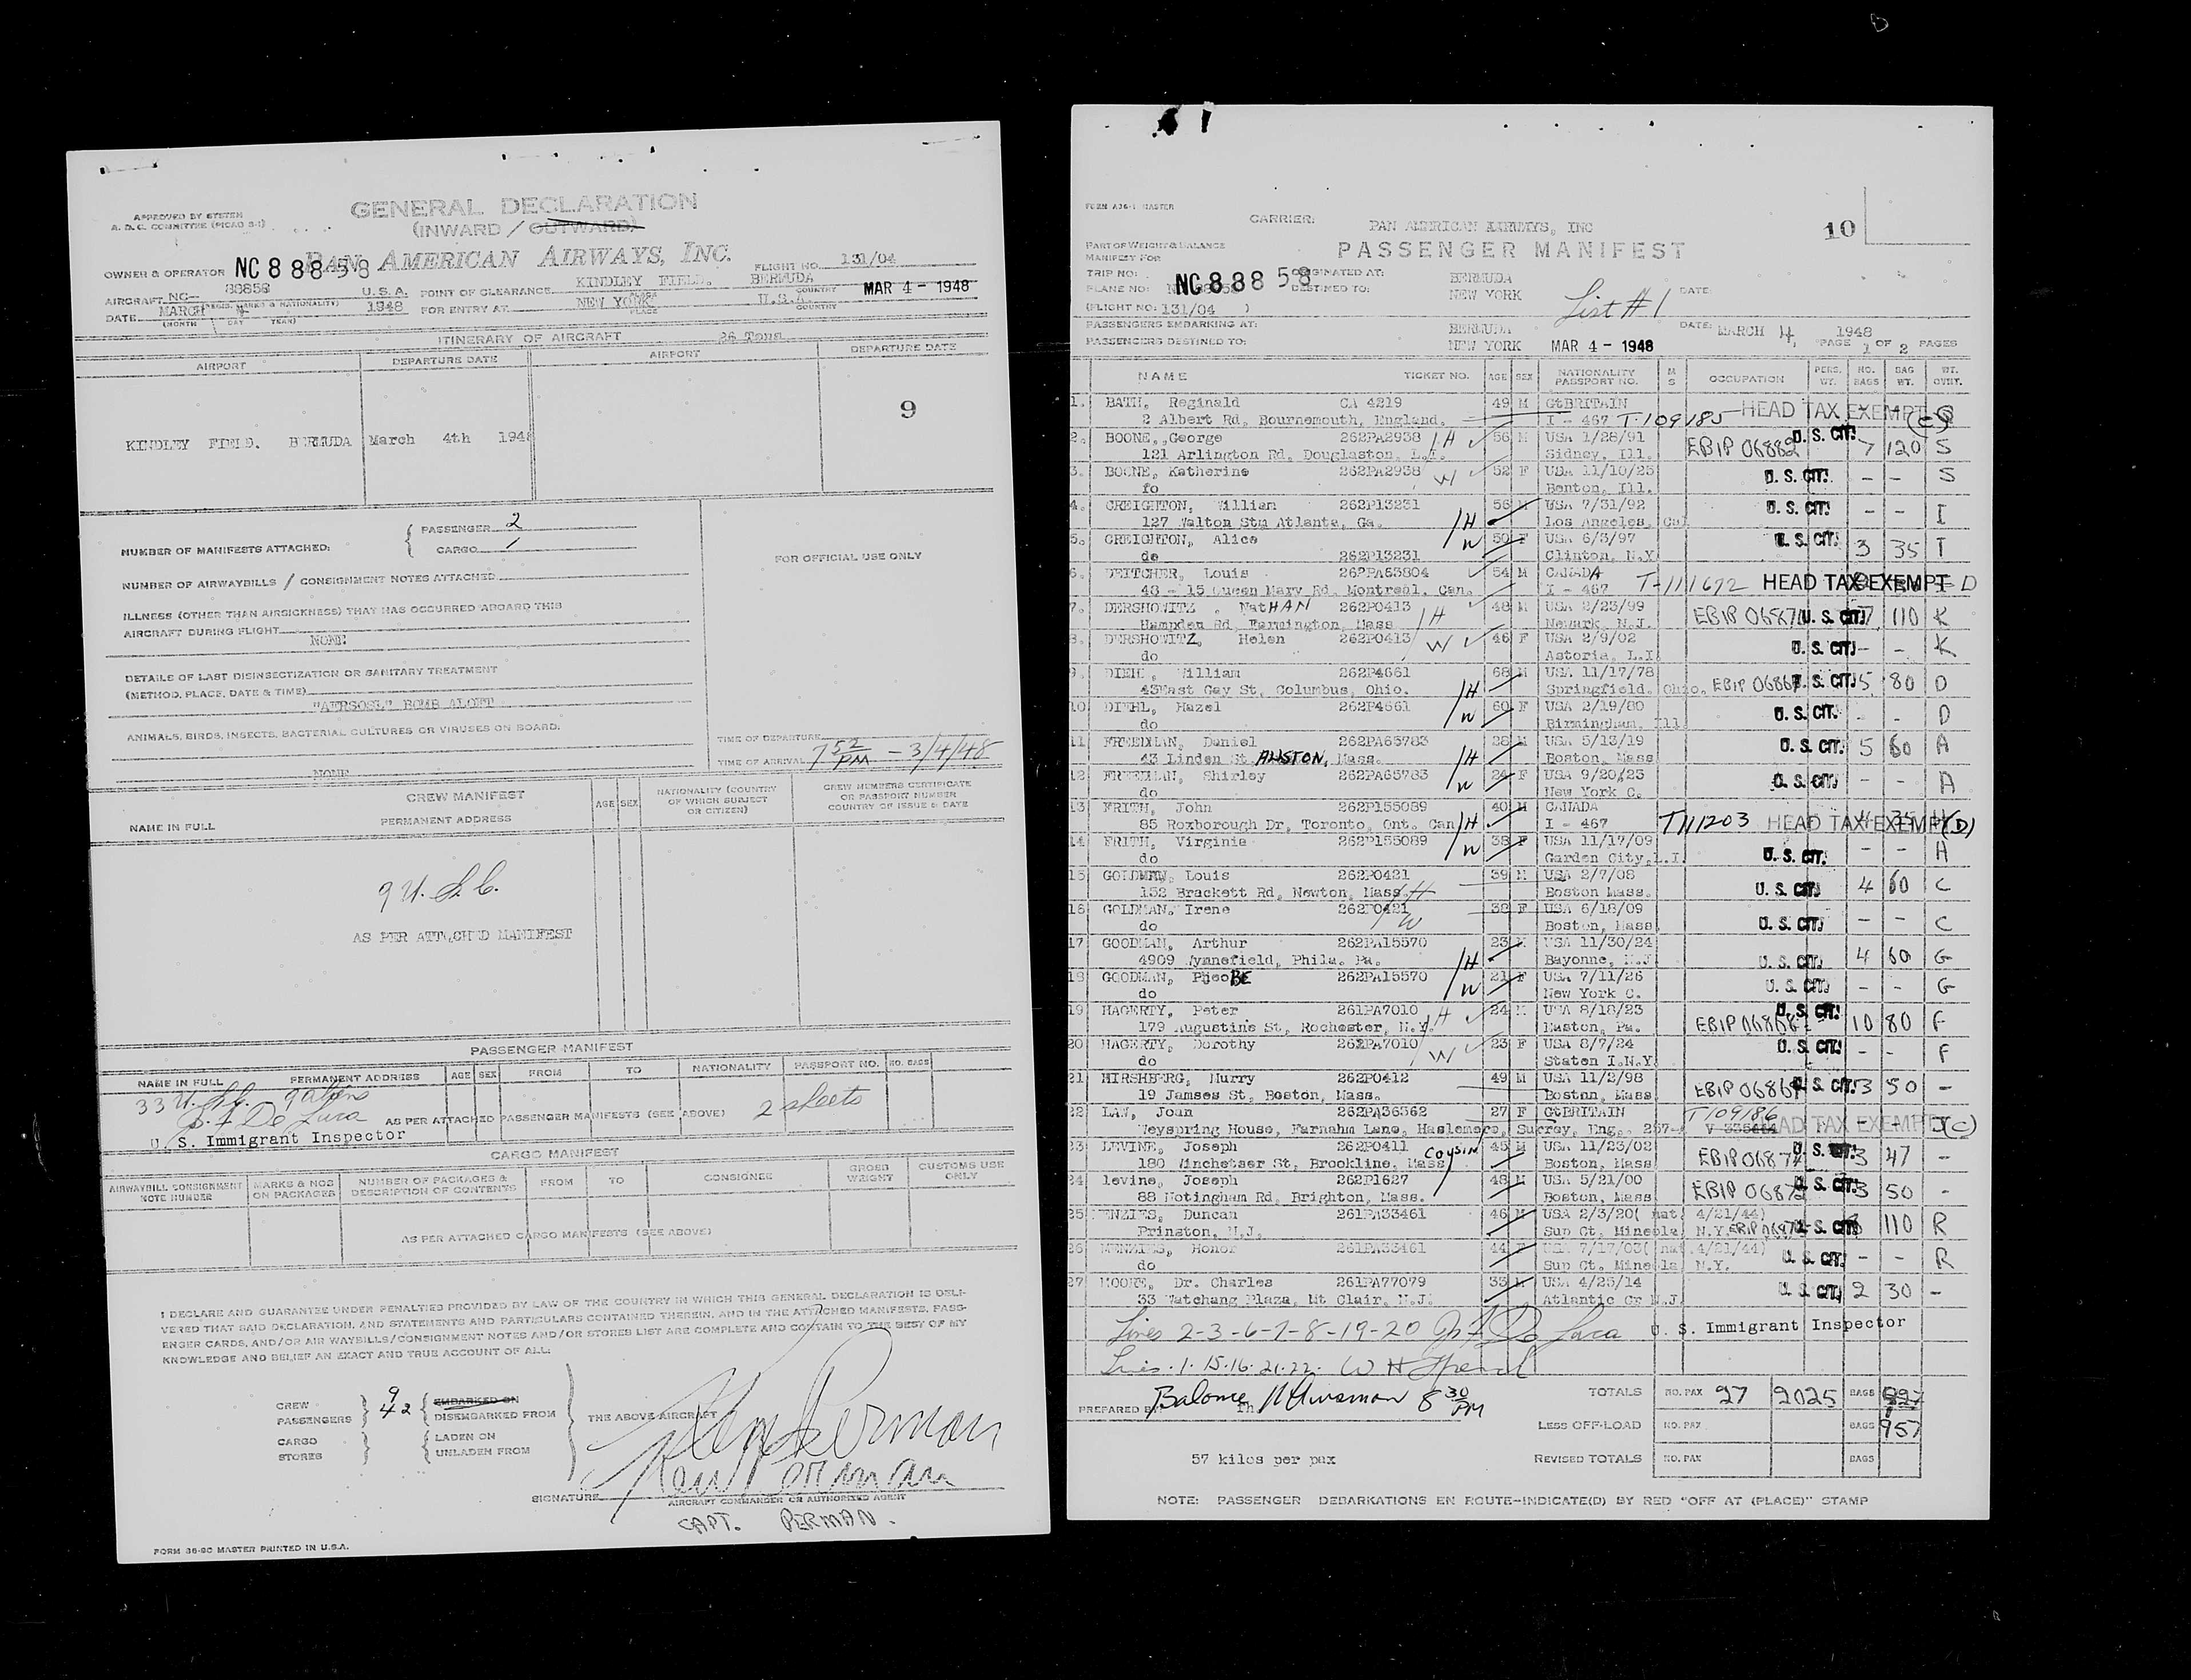 APPROVED BY SYSTEM
A. D. C. COMMITTEE (PICAO S-1)
GENERAL DECLARATION
(INWARD / OUTWARD)
OWNER & OPERATOR NC 88858 PAN AMERICAN AIRWAYS, INC. FLIGHT NO. 131/04
AIRCRAFT NC- 88858 U.S.A. POINT OF CLEARANCE KINDLEY FIELD, BERMUDA MAR 4 - 1948
(REGIS. MARKS & NATIONALITY) PLACE COUNTRY
DATE MARCH 4 1948 FOR ENTRY AT NEW YORK U.S.A.
(MONTH DAY YEAR) PLACE COUNTRY
ITINERARY OF AIRCRAFT 26 Tons
AIRPORT DEPARTURE DATE AIRPORT DEPARTURE DATE
9
KINDLEY FIELD. BERMUDA March 4th 1948
NUMBER OF MANIFESTS ATTACHED: PASSENGER 2
CARGO 1
FOR OFFICIAL USE ONLY
NUMBER OF AIRWAYBILLS / CONSIGNMENT NOTES ATTACHED
ILLNESS (OTHER THAN AIRSICKNESS) THAT HAS OCCURRED ABOARD THIS
AIRCRAFT DURING FLIGHT
NONE
DETAILS OF LAST DISINSECTIZATION OR SANITARY TREATMENT
(METHOD, PLACE, DATE & TIME)
"AERSOSL" BOMB ALOFT
ANIMALS, BIRDS, INSECTS, BACTERIAL CULTURES OR VIRUSES ON BOARD.
NONE
TIME OF DEPARTURE
TIME OF ARRIVAL 7 52 PM - 3/4/48
CREW MANIFEST
NAME IN FULL PERMANENT ADDRESS AGE SEX NATIONALITY (COUNTRY OF WHICH SUBJECT OR CITIZEN) CREW MEMBERS CERTIFICATE OR PASSPORT NUMBER COUNTRY OF ISSUE & DATE
9 U. S. C.
AS PER ATTACHED MANIFEST
PASSENGER MANIFEST
NAME IN FULL PERMANENT ADDRESS AGE SEX FROM TO NATIONALITY PASSPORT NO. NO. BAGS
33 U.S.C. 9 aliens
De Luca AS PER ATTACHED PASSENGER MANIFESTS (SEE ABOVE) 2 sheets
U. S. Immigrant Inspector
CARGO MANIFEST
AIRWAYBILL CONSIGNMENT NOTE NUMBER MARKS & NOS ON PACKAGES NUMBER OF PACKAGES & DESCRIPTION OF CONTENTS FROM TO CONSIGNEE GROSS WEIGHT CUSTOMS USE ONLY
AS PER ATTACHED CARGO MANIFESTS (SEE ABOVE)
I DECLARE AND GUARANTEE UNDER PENALTIES PROVIDED BY LAW OF THE COUNTRY IN WHICH THIS GENERAL DECLARATION IS DELI-
VERED THAT SAID DECLARATION, AND STATEMENTS AND PARTICULARS CONTAINED THEREIN, AND IN THE ATTACHED MANIFESTS, PASS-
ENGER CARDS, AND/OR AIR WAYBILLS/CONSIGNMENT NOTES AND/OR STORES LIST ARE COMPLETE AND CONTAIN TO THE BEST OF MY
KNOWLEDGE AND BELIEF AN EXACT AND TRUE ACCOUNT OF ALL:
CREW 9 EMBARKED ON
PASSENGERS 42 DISEMBARKED FROM THE ABOVE AIRCRAFT
CARGO LADEN ON
STORES UNLADEN FROM
SIGNATURE
AIRCRAFT COMMANDER OR AUTHORIZED AGENT
CAPT. PERMAN.
FORM 36-SC MASTER PRINTED IN U.S.A.
FORM A36-1 MASTER
CARRIER: PAN AMERICAN AIRWAYS, INC 10
PART OF WEIGHT & BALANCE
MANIFEST FOR
PASSENGER MANIFEST
TRIP NO: ORIGINATED AT: BERMUDA
PLANE NO: NC 88858 DESTINED TO: NEW YORK List #1 DATE
(FLIGHT NO: 131/04 )
PASSENGERS EMBARKING AT: BERMUDA DATE: MARCH 4, 1948
PASSENGERS DESTINED TO: NEW YORK MAR 4 - 1948 PAGE 1 OF 2 PAGES
NAME TICKET NO. AGE SEX NATIONALITY PASSPORT NO. M S OCCUPATION PERS. WT. NO. BAGS BAG WT. WT. OVWT.
1. BATH, Reginald CA 4219 49 M GtBRITAIN HEAD TAX EXEMPT
2 Albert Rd, Bournemouth, England. I - 467 T-109185 (C)
2. BOONE,,George 262PA2938 H 56 M USA 1/28/91 U. S. CIT.
121 Arlington Rd, Douglaston, L.I. Sidney, Ill. EBIP 06882 7 120 S
3. BOONE, Katherine 262PA2938 W 52 F USA 11/10/25 U. S. CIT. - - S
fo Benton, Ill.
4. CREIGHTON, William 262P13231 56 M USA 7/31/92 U. S. CIT. - - I
127 Walton Stm Atlanta, Ga. H Los Angeles, Cal
5. CREIGHTON, Alice W 50 F USA 6/3/97 U. S. CIT. 3 35 I
do 262P13231 Clinton, N.Y
6. DEITCHER, Louis 262PA63804 54 M CANADA T-111672 HEAD TAX EXEMPT D
48 - 15 Queen Mary Rd, Montreal, Can. I - 467
7. DERSHOWITZ , NatHAN 262P0413 H 48 M USA 2/23/99 U. S. CIT. 7 110 K
Hampden Rd, Farmington, Mass Newark, N.J.
8. DERSHOWITZ, Helen 262P0413 W 46 F USA 2/9/02 U. S. CIT. - - K
do Astoria, L.I.
9. DIEHL, William 262P4661 68 M USA 11/17/78 U. S. CIT. 5 80 D
43East Gay St, Columbus, Ohio. H Springfield, Ohio.
10 DIEHL, Hazel 262P4661 60 F USA 2/19/80 U. S. CIT. - - D
do W Birmingham, Ill
11 FREEDMAN, Daniel 262PA65783 28 M USA 5/13/19 U. S. CIT. 5 60 A
43 Linden St ALLSTON, Mass. H Boston, Mass
12 FREEDMAN, Shirley 262PA65783 24 F USA 9/20/23 U. S. CIT. - - A
do W New York C.
13 FRITH, John 262P155089 40 M CANADA
85 Roxborough Dr, Toronto, Ont. Can H I - 467 T111203 HEAD TAX EXEMPT (D)
14 FRITH, Virginia 262P155089 38 F USA 11/17/09 U. S. CIT. - - H
do W Garden City, L.I.
15 GOLDMAN, Louis 262P0421 39 M USA 2/7/08 U. S. CIT. 4 60 C
152 Brackett Rd, Newton, Mass H Boston Mass.
16 GOLDMAN, Irene 262P0421 38 F USA 6/18/09 U. S. CIT. - - C
do W Boston, Mass
17 GOODMAN, Arthur 262PA15570 23 M USA 11/30/24 U. S. CIT. 4 60 G
4909 Wynnefield, Phila. Pa. H Bayonne, N.J
18 GOODMAN, PhoeBE 262PA15570 21 F USA 7/11/26 U. S. CIT. - - G
do W New York C.
19 HAGERTY, Peter 261PA7010 H 24 M USA 8/18/23 U. S. CIT. 10 80 F
179 Augustine St, Rochester, N.Y. Easton, Pa.
20 HAGERTY, Dorothy 262PA7010 W 23 F USA 8/7/24 U. S. CIT. - - F
do Staten I.N.Y
21 HIRSHBERG, Murry 262P0412 49 M USA 11/2/98 U. S. CIT. 3 50 -
19 Jamses St, Boston, Mass. Boston, Mass
22 LAW, Joan 262PA36362 27 F GtBRITAIN T109186 HEAD TAX EXEMPT (C)
Weyspring House, Farnahm Lane, Haslemere, Surrey, Eng.
23 LEVINE, Joseph 262P0411 COUSIN 45 M USA 11/23/02 U. S. CIT. 3 47 -
180 Winchetser St, Brookline, Mass Boston, Mass
24 levine, Joseph 262P1627 48 M USA 5/21/00 U. S. CIT. 3 50 -
88 Notingham Rd, Brighton, Mass. Boston, Mass
25 MENZIES, Duncan 261PA33461 46 M USA 2/3/20( nat. 4/21/44) U. S. CIT. 110 R
Prinston, N.J. Sup Ct. Mineola N.Y.
26 MENZIES, Honor 261PA33461 44 F USA 7/17/03( nat.4/21/44) U. S. CIT. - - R
do Sup Ct. Mineola N.Y.
27 MOORE, Dr. Charles 261PA77079 33 M USA 4/25/14 U. S. CIT. 2 30 -
33 Watchang Plaza, Mt Clair, N.J. Atlantic Cy N.J.
Lines 2-3-6-7-8-19-20 De Luca U. S. Immigrant Inspector
Lines. 1. 15.16. 21.22. W H
PREPARED BY Balance 8 30 PM
TOTALS NO. PAX 27 2025 BAGS
LESS OFF-LOAD NO. PAX BAGS 957
57 kilos per pax REVISED TOTALS NO. PAX BAGS
NOTE: PASSENGER DEBARKATIONS EN ROUTE-INDICATE(D) BY RED "OFF AT (PLACE)" STAMP